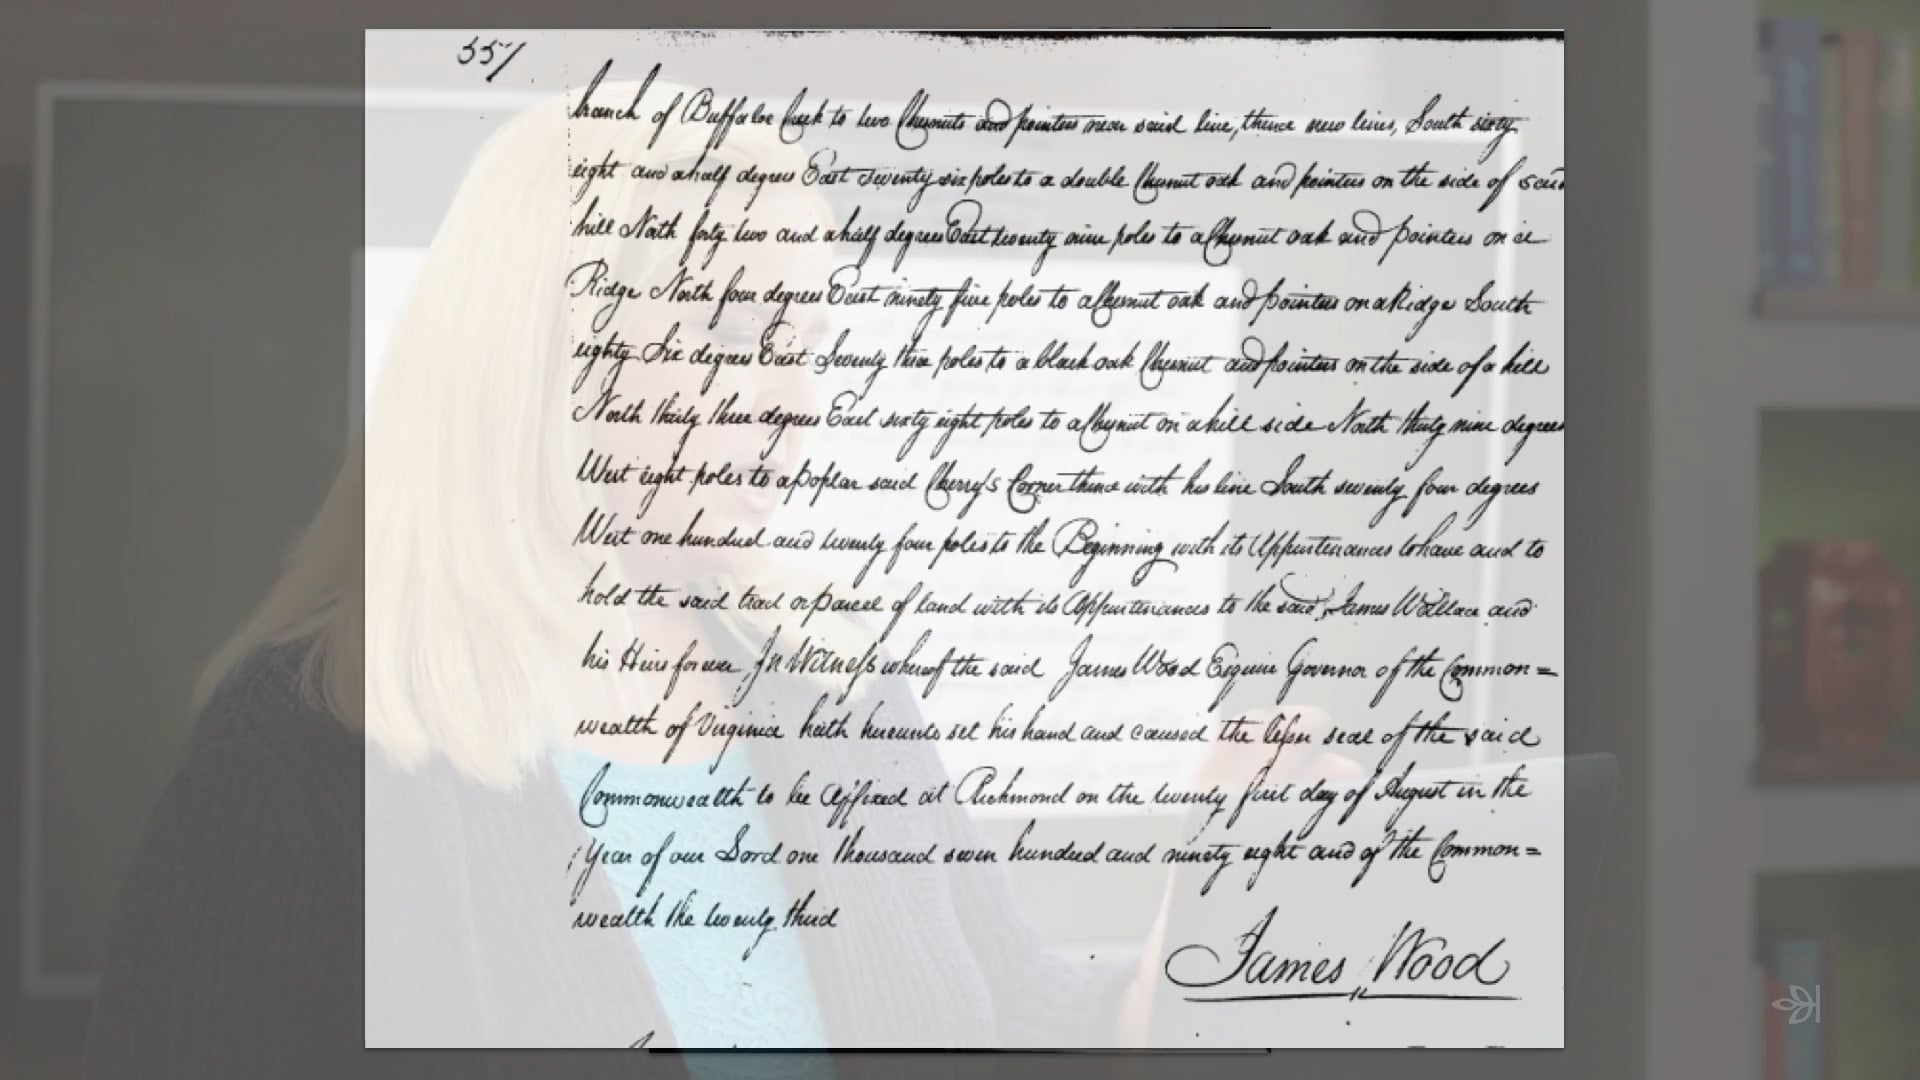 557
branch of Buffaloe Creek to two Chesnuts and pointers near said line, thence new lines, South sixty
eight and a half degrees East seventy six poles to a double Chesnut oak and pointers on the side of said
hill North forty two and a half degrees East twenty nine poles to a Chesnut oak and pointers on a
Ridge North four degrees East ninety five poles to a Chesnut oak and pointers on a Ridge South
eighty Six degrees East Seventy three poles to a black oak Chesnut and pointers on the side of a hill
North thirty three degrees East sixty eight poles to a Chesnut on a hill side North thirty nine degrees
West eight poles to a poplar said Cherry's Corner thence with his line South seventy four degrees
West one hundred and twenty four poles to the Beginning with its Appurtenances to have and to
hold the said tract or parcel of land with its Appurtenances to the said James Wallace and
his Heirs forever, In Witness whereof the said James Wood Esquire Governor of the Common=
wealth of Virginia hath hereunto set his hand and caused the lesser seal of the said
Commonwealth to be affixed at Richmond on the twenty first day of August in the
Year of our Lord one thousand seven hundred and ninety eight and of the Common=
wealth the twenty third
James Wood